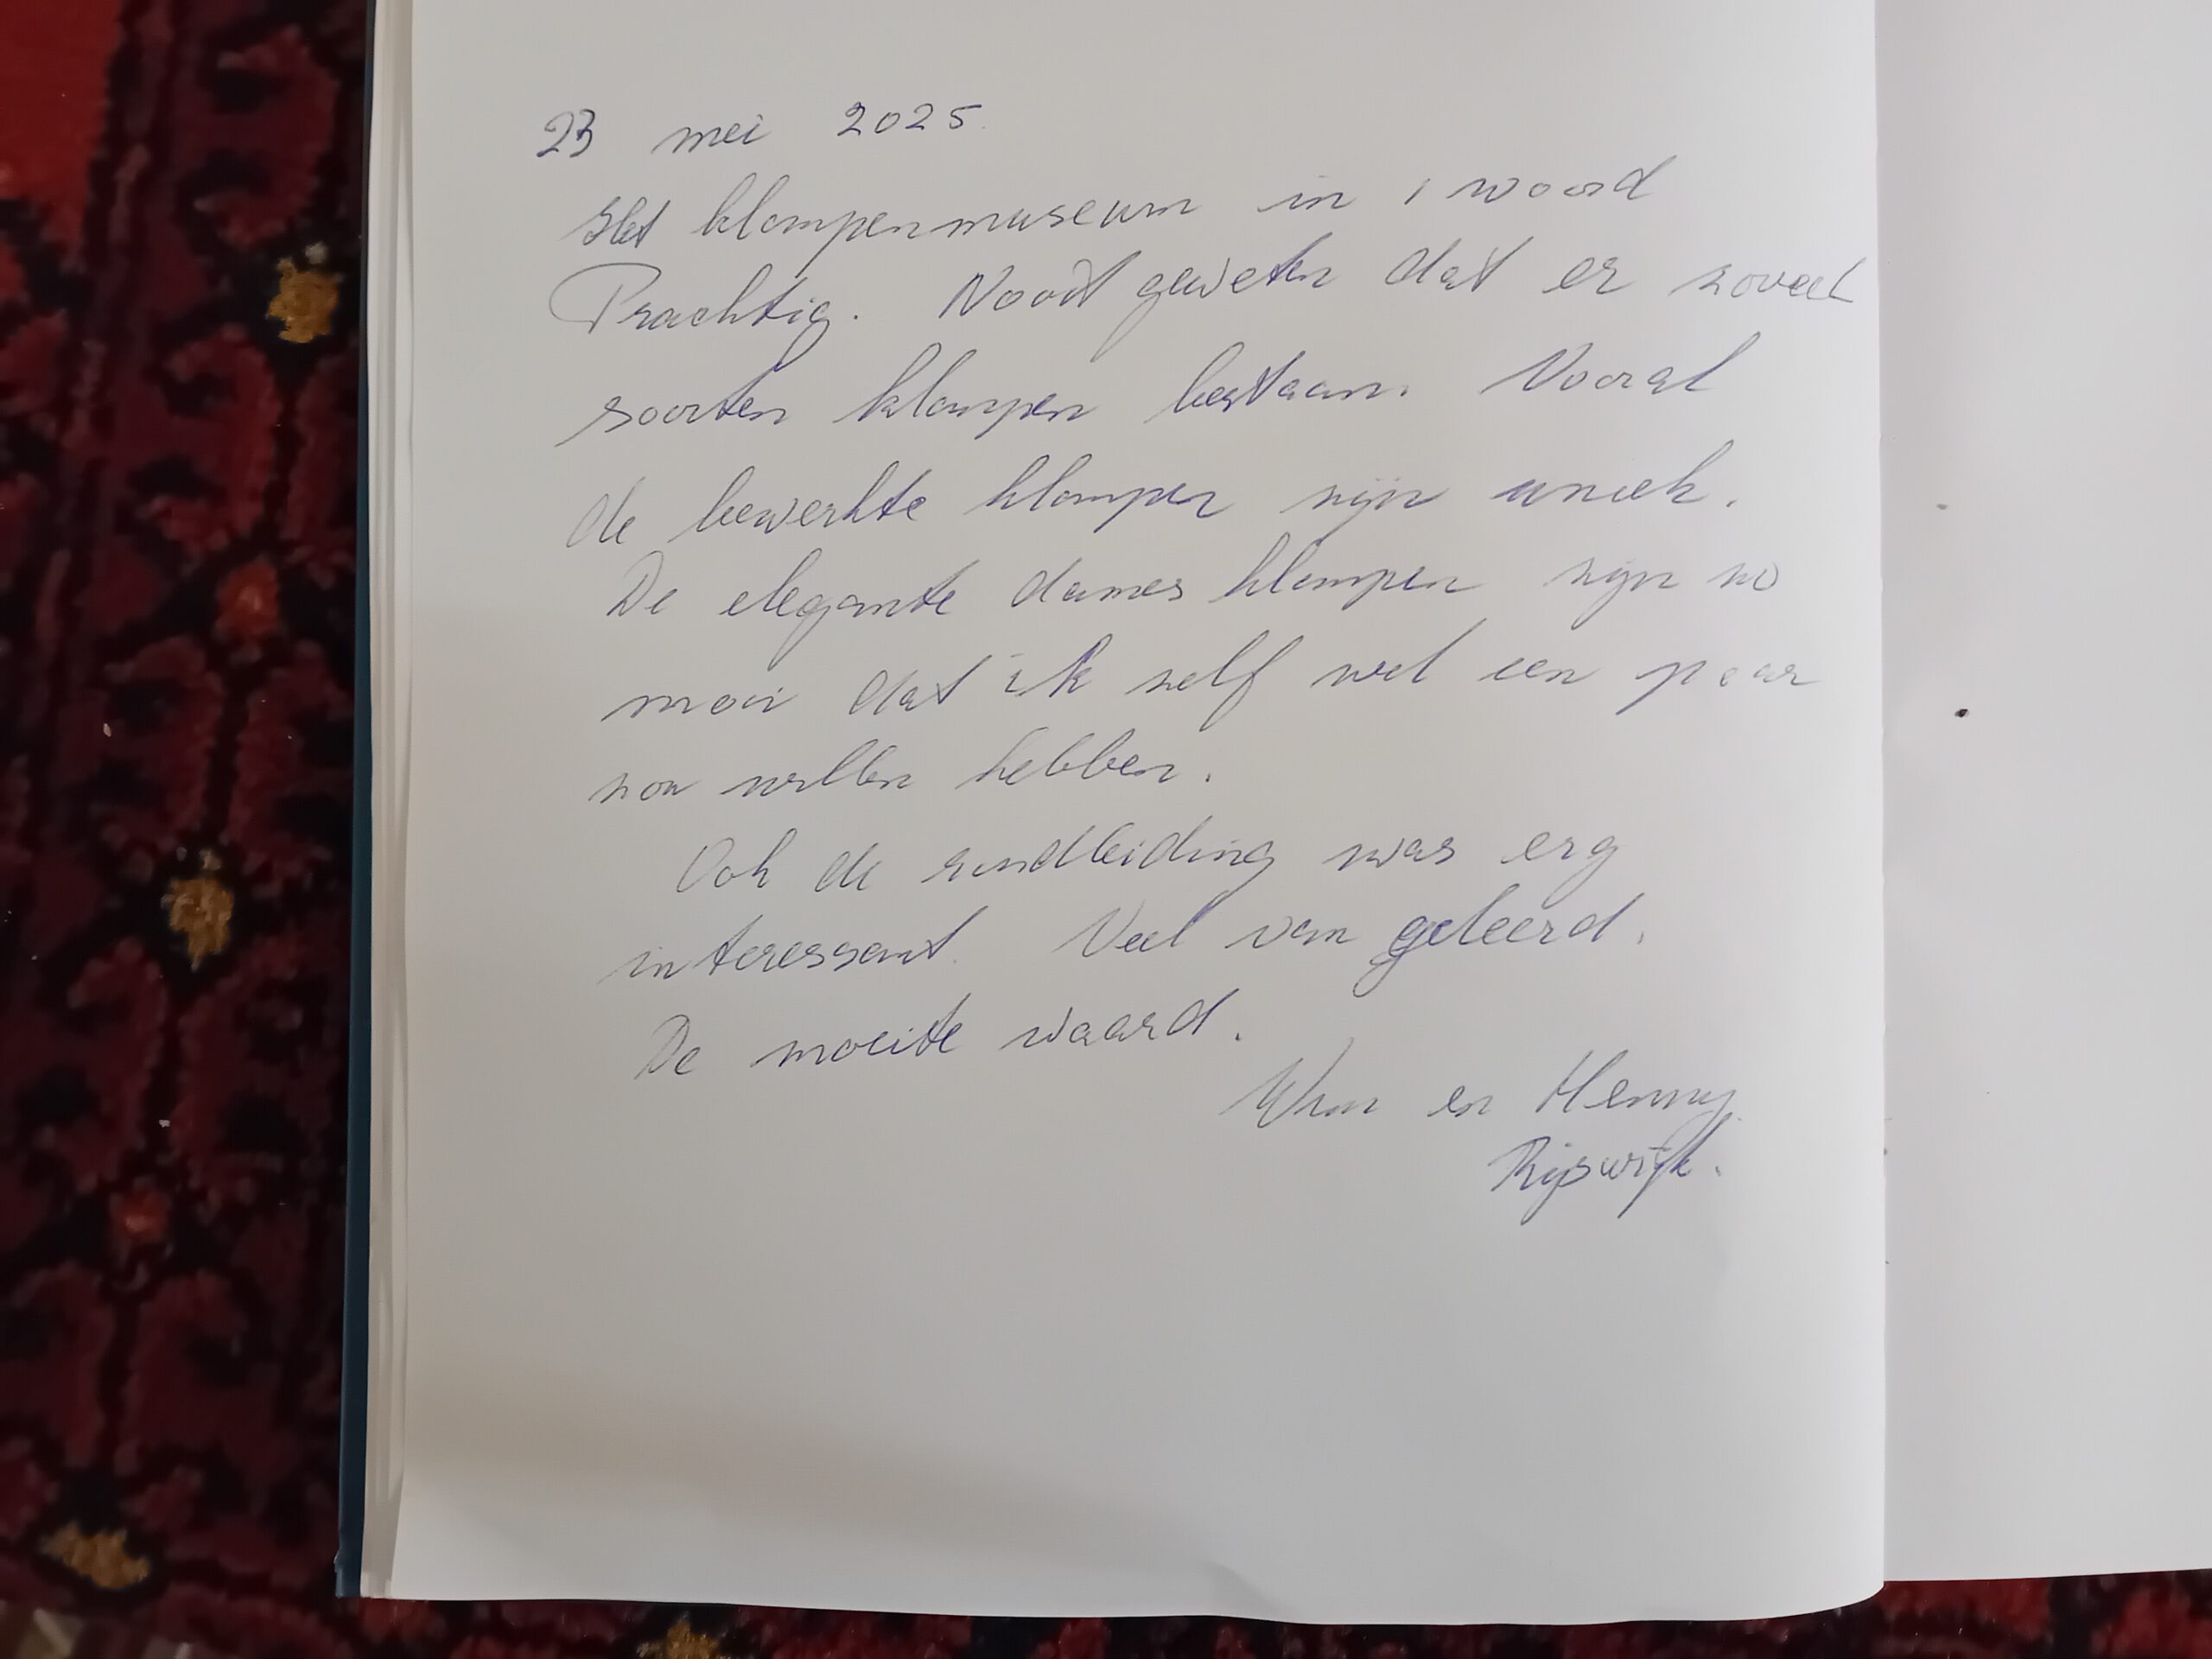 23 mei 2025.
Het klompenmuseum in 1 woord
Prachtig. Nooit geweten dat er zoveel
soorten klompen bestaan. Vooral
de bewerkte klompen zijn uniek.
De elegante dames klompen zijn zo
mooi dat ik zelf wel een paar
zou willen hebben.
Ook de rondleiding was erg
interessant. Veel van geleerd.
De moeite waard.
Wim en Henny
Rijswijk.